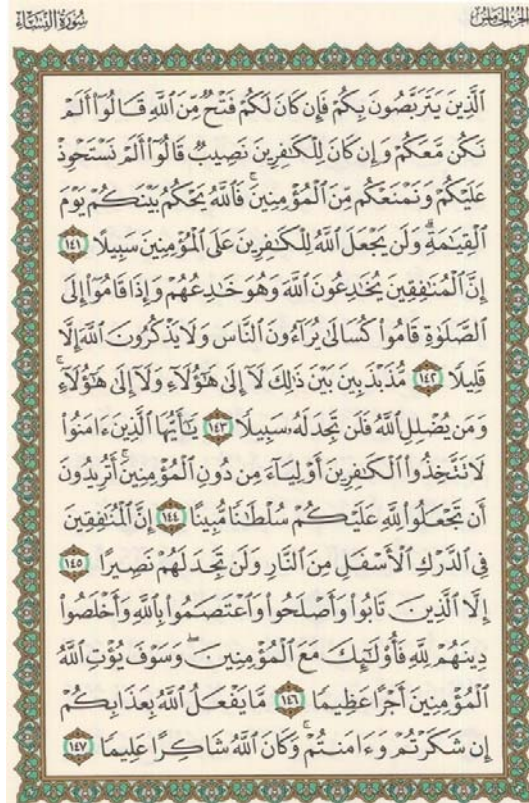 الجزء الخامس
سورة النساء
ٱلَّذِينَ يَتَرَبَّصُونَ بِكُمْ فَإِن كَانَ لَكُمْ فَتْحٌ مِّنَ ٱللَّهِ قَالُوٓا۟ أَلَمْ
نَكُن مَّعَكُمْ وَإِن كَانَ لِلْكَٰفِرِينَ نَصِيبٌ قَالُوٓا۟ أَلَمْ نَسْتَحْوِذْ
عَلَيْكُمْ وَنَمْنَعْكُم مِّنَ ٱلْمُؤْمِنِينَ ۚ فَٱللَّهُ يَحْكُمُ بَيْنَكُمْ يَوْمَ
ٱلْقِيَٰمَةِ ۗ وَلَن يَجْعَلَ ٱللَّهُ لِلْكَٰفِرِينَ عَلَى ٱلْمُؤْمِنِينَ سَبِيلًا ١٤١
إِنَّ ٱلْمُنَٰفِقِينَ يُخَٰدِعُونَ ٱللَّهَ وَهُوَ خَٰدِعُهُمْ وَإِذَا قَامُوٓا۟ إِلَى
ٱلصَّلَوٰةِ قَامُوا۟ كُسَالَىٰ يُرَآءُونَ ٱلنَّاسَ وَلَا يَذْكُرُونَ ٱللَّهَ إِلَّا
قَلِيلًا ١٤٢ مُّذَبْذَبِينَ بَيْنَ ذَٰلِكَ لَآ إِلَىٰ هَٰٓؤُلَآءِ وَلَآ إِلَىٰ هَٰٓؤُلَآءِ ۚ
وَمَن يُضْلِلِ ٱللَّهُ فَلَن تَجِدَ لَهُۥ سَبِيلًا ١٤٣ يَٰٓأَيُّهَا ٱلَّذِينَ ءَامَنُوا۟
لَا تَتَّخِذُوا۟ ٱلْكَٰفِرِينَ أَوْلِيَآءَ مِن دُونِ ٱلْمُؤْمِنِينَ ۚ أَتُرِيدُونَ
أَن تَجْعَلُوا۟ لِلَّهِ عَلَيْكُمْ سُلْطَٰنًا مُّبِينًا ١٤٤ إِنَّ ٱلْمُنَٰفِقِينَ
فِى ٱلدَّرْكِ ٱلْأَسْفَلِ مِنَ ٱلنَّارِ وَلَن تَجِدَ لَهُمْ نَصِيرًا ١٤٥
إِلَّا ٱلَّذِينَ تَابُوا۟ وَأَصْلَحُوا۟ وَٱعْتَصَمُوا۟ بِٱللَّهِ وَأَخْلَصُوا۟
دِينَهُمْ لِلَّهِ فَأُو۟لَٰٓئِكَ مَعَ ٱلْمُؤْمِنِينَ ۖ وَسَوْفَ يُؤْتِ ٱللَّهُ
ٱلْمُؤْمِنِينَ أَجْرًا عَظِيمًا ١٤٦ مَّا يَفْعَلُ ٱللَّهُ بِعَذَابِكُمْ
إِن شَكَرْتُمْ وَءَامَنتُمْ ۚ وَكَانَ ٱللَّهُ شَاكِرًا عَلِيمًا ١٤٧